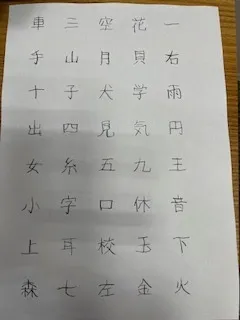 一右雨円王音下火
花貝学気九休玉金
空月犬見五口校左
三山子四糸字耳七
車手十出女小上森